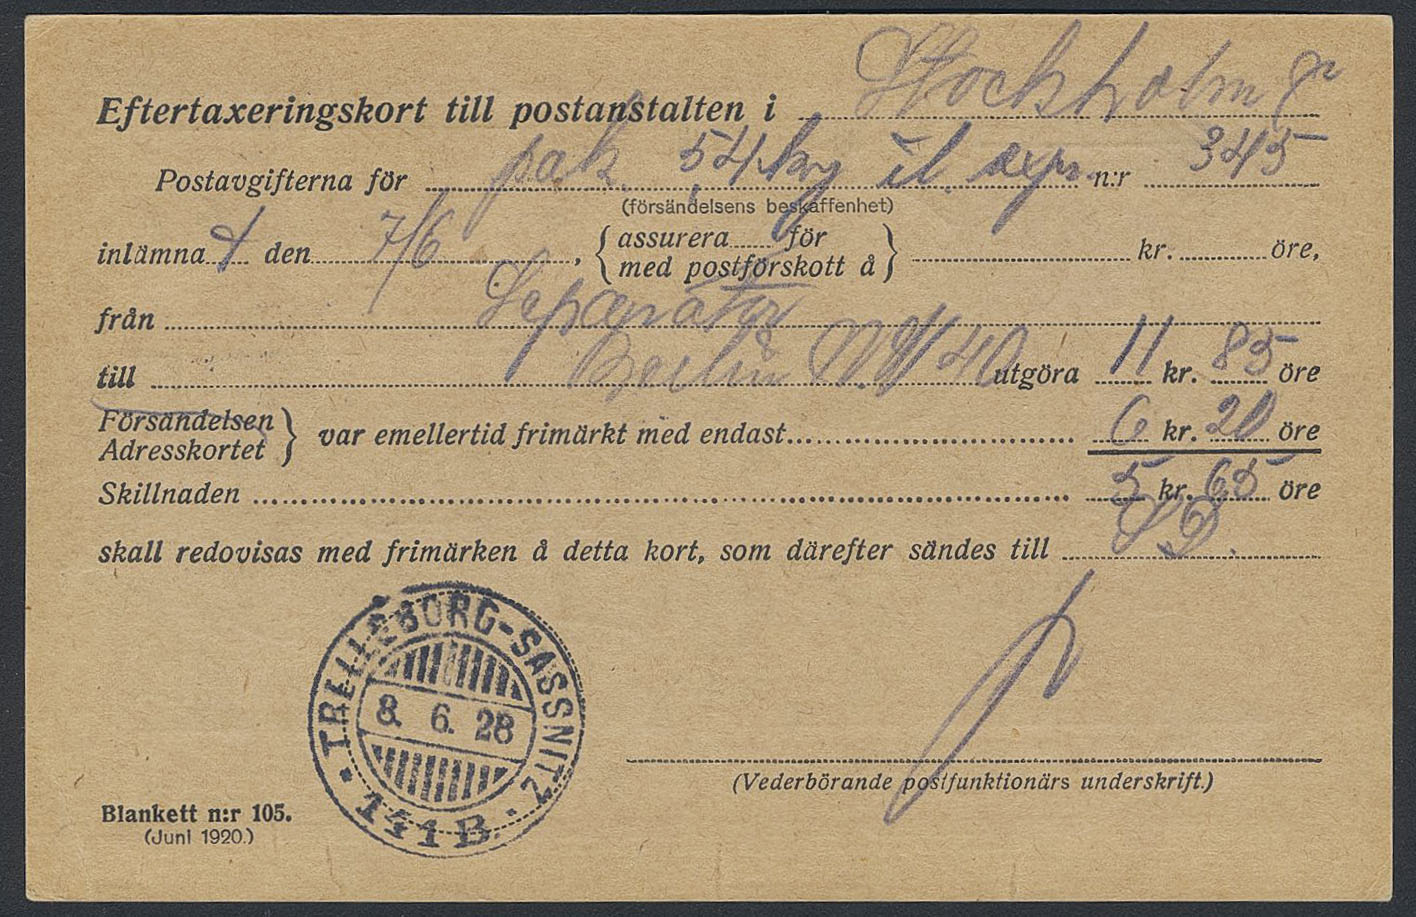 Eftertaxeringskort till postanstalten i Stockholm
Postavgifterna för pak. 5,4 kg il. exps. n:r 345
(försändelsens beskaffenhet)
inlämnat den 7/6, { assurera...... för
med postförskott å } kr. öre,
från Separator
till Berlin N.W 40 utgöra 11 kr. 85 öre
Försändelsen
Adresskortet } var emellertid frimärkt med endast 6 kr. 20 öre
Skillnaden 5 kr. 65 öre
skall redovisas med frimärken å detta kort, som därefter sändes till
TRELLEBORG-SASSNITZ
8. 6. 28
141 B.
(Vederbörande postfunktionärs underskrift.)
Blankett n:r 105.
(Juni 1920.)